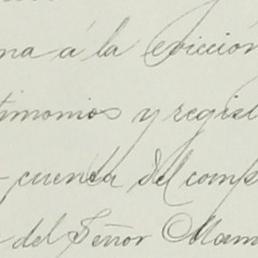 na á la evicción
timonios y regist
cuenta del comp
del Señor Mam